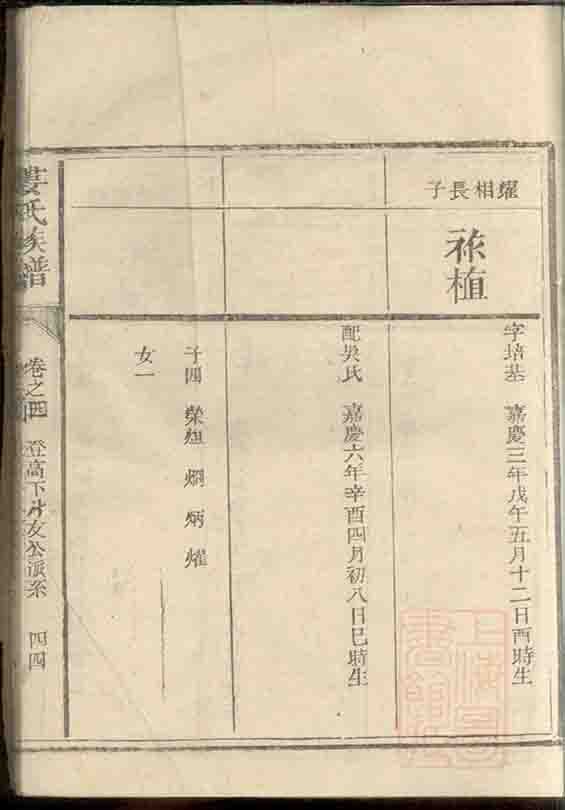 耀相長子
祿植
字培基 嘉慶三年戊午五月十二日酉時生
配吳氏 嘉慶六年辛酉四月初八日巳時生
子四 榮 炯 炳 燿
女一
姜氏族譜
卷之四 登高下 友公派系 四四
上海圖書館藏